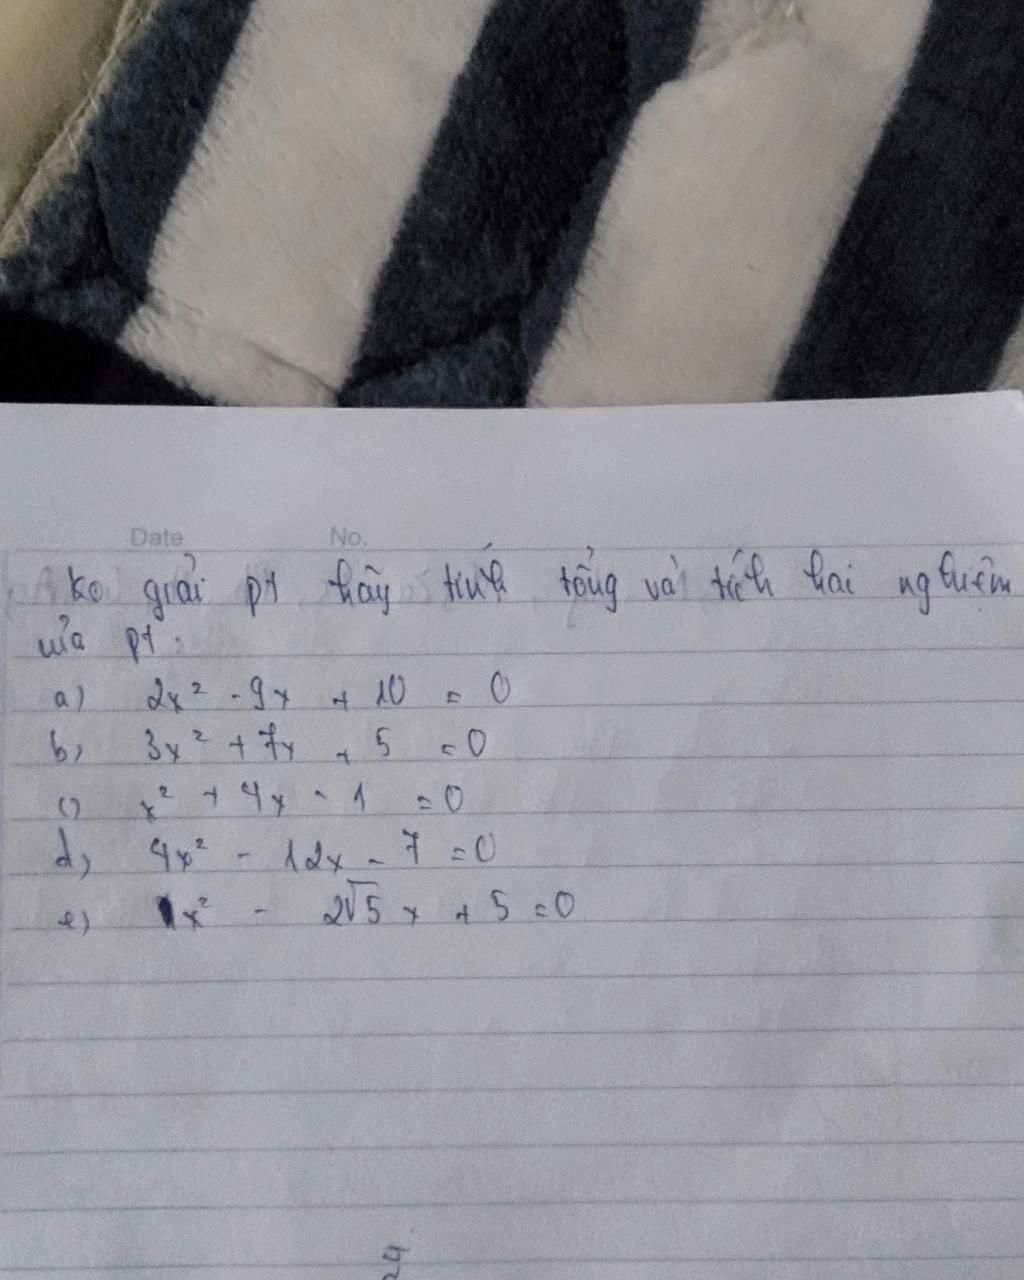 Date No.
ko giải pt hãy tính tổng và tích hai nghiệm
của pt :
a) 2x² - 9x + 10 = 0
b) 3x² + 7x + 5 = 0
c) x² + 4x - 1 = 0
d) 4x² - 12x - 7 = 0
e) x² - 2√5 x + 5 = 0
24